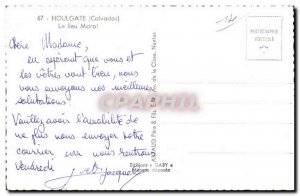 67 - HOULGATE (Calvados)
Le lieu Marot
PHOTOGRAPHIE
VERITABLE
Chère Madame,
en espérant que vous et
les vôtres vont bien, nous
vous envoyons nos meilleures
salutations
Veuillez avoir l'amabilité de
ne plus nous envoyer notre
courrier car nous rentrons
Vendredi
Jacques
Editions « GABY »
Marque déposée
CPARAMA.COM